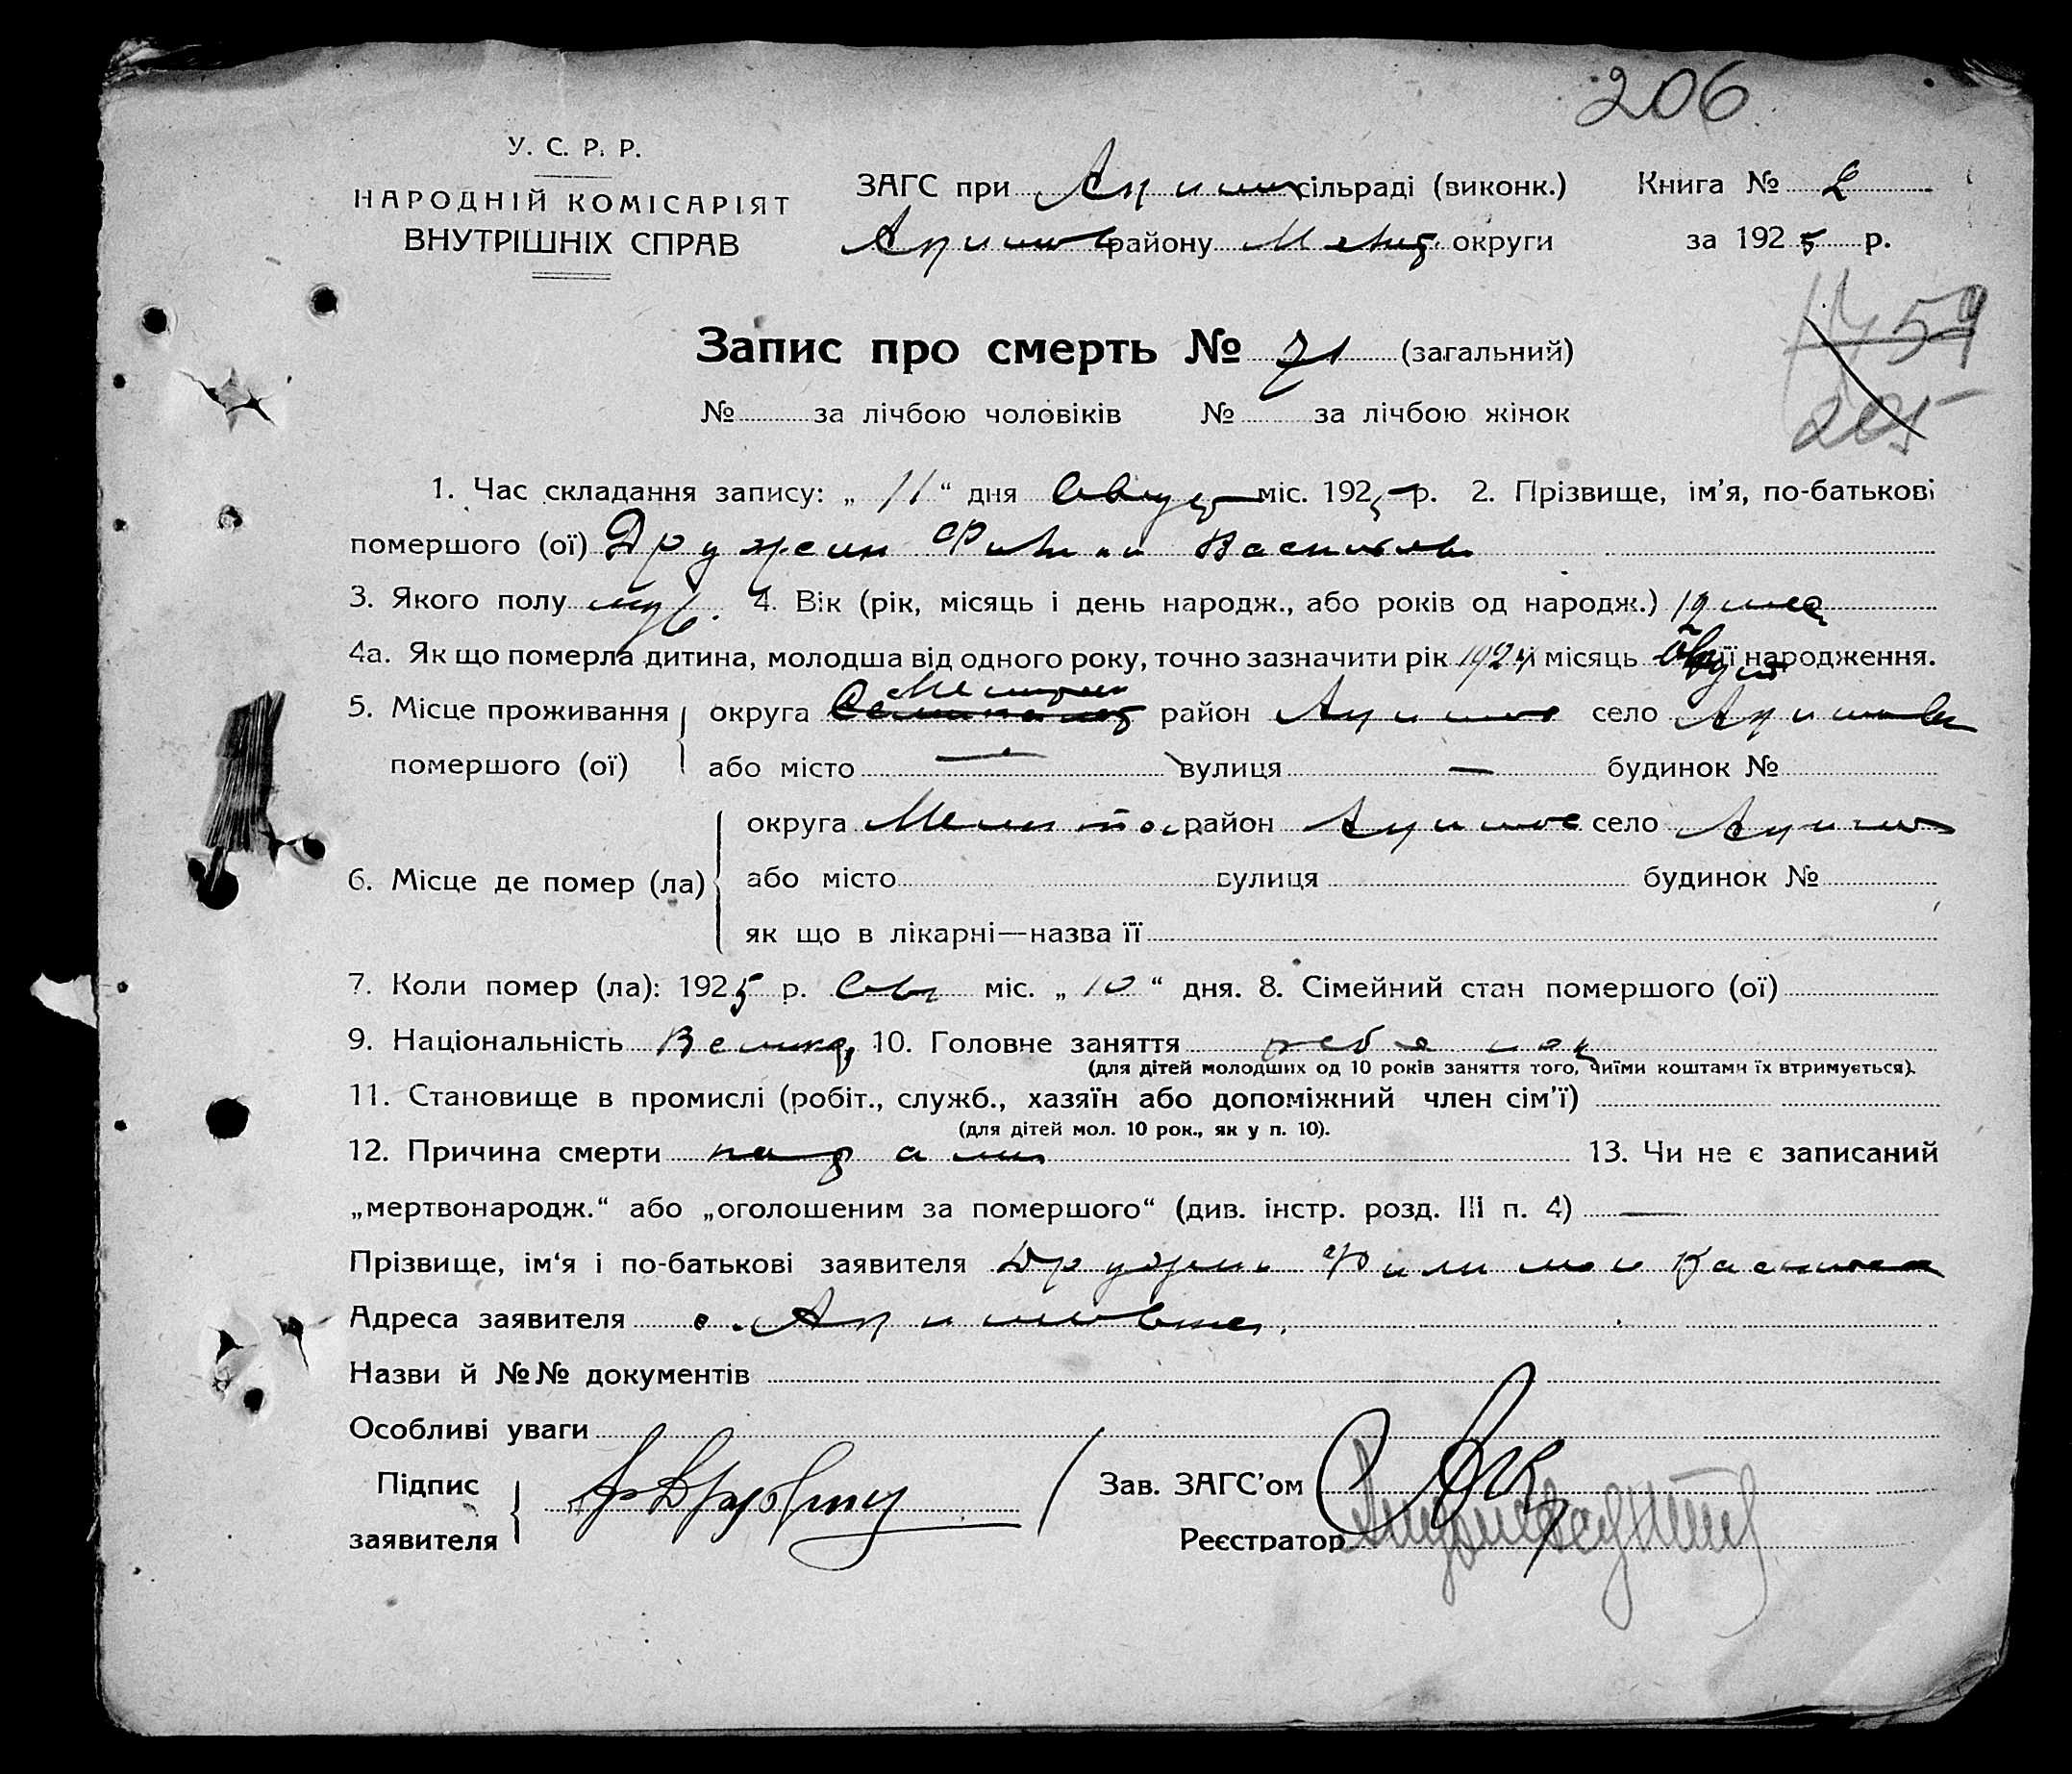 206
У. С. Р. Р.
НАРОДНІЙ КОМІСАРІЯТ
ВНУТРІШНІХ СПРАВ
ЗАГС при Акимов сільраді (виконк.) Книга № 2
Акимов району Меліт. округи за 1925 р.
Запис про смерть № 71 (загальний)
59
205
№ за лічбою чоловіків № за лічбою жінок
1. Час складання запису: „ 11 “ дня міс. 1925 р. 2. Прізвище, ім’я, по-батькові
помершого (ої)
3. Якого полу муж. 4. Вік (рік, місяць і день народж., або років од народж.)
4а. Як що померла дитина, молодша від одного року, точно зазначити рік 1924 і місяць її народження.
5. Місце проживання округа район Акимов село Акимовк
помершого (ої) або місто — вулиця — будинок №
округа Мелитоп район Акимов село Акимов
6. Місце де помер (ла) або місто вулиця будинок №
як що в лікарні—назва її
7. Коли помер (ла): 1925 р. Авг міс. „ 10 “ дня. 8. Сімейний стан помершого (ої)
9. Національність Великор 10. Головне заняття
(для дітей молодших од 10 років заняття того, чиїми коштами їх втримується).
11. Становище в промислі (робіт., служб., хазяїн або допоміжний член сім’ї)
(для дітей мол. 10 рок., як у п. 10).
12. Причина смерти 13. Чи не є записаний
„мертвонародж.“ або „оголошеним за помершого“ (див. інстр. розд. III п. 4) —
Прізвище, ім‘я і по-батькові заявителя Филимон
Адреса заявителя с. Акимовка
Назви й №№ документів
Особливі уваги
Підпис Зав. ЗАГС’ом
заявителя Реєстратор